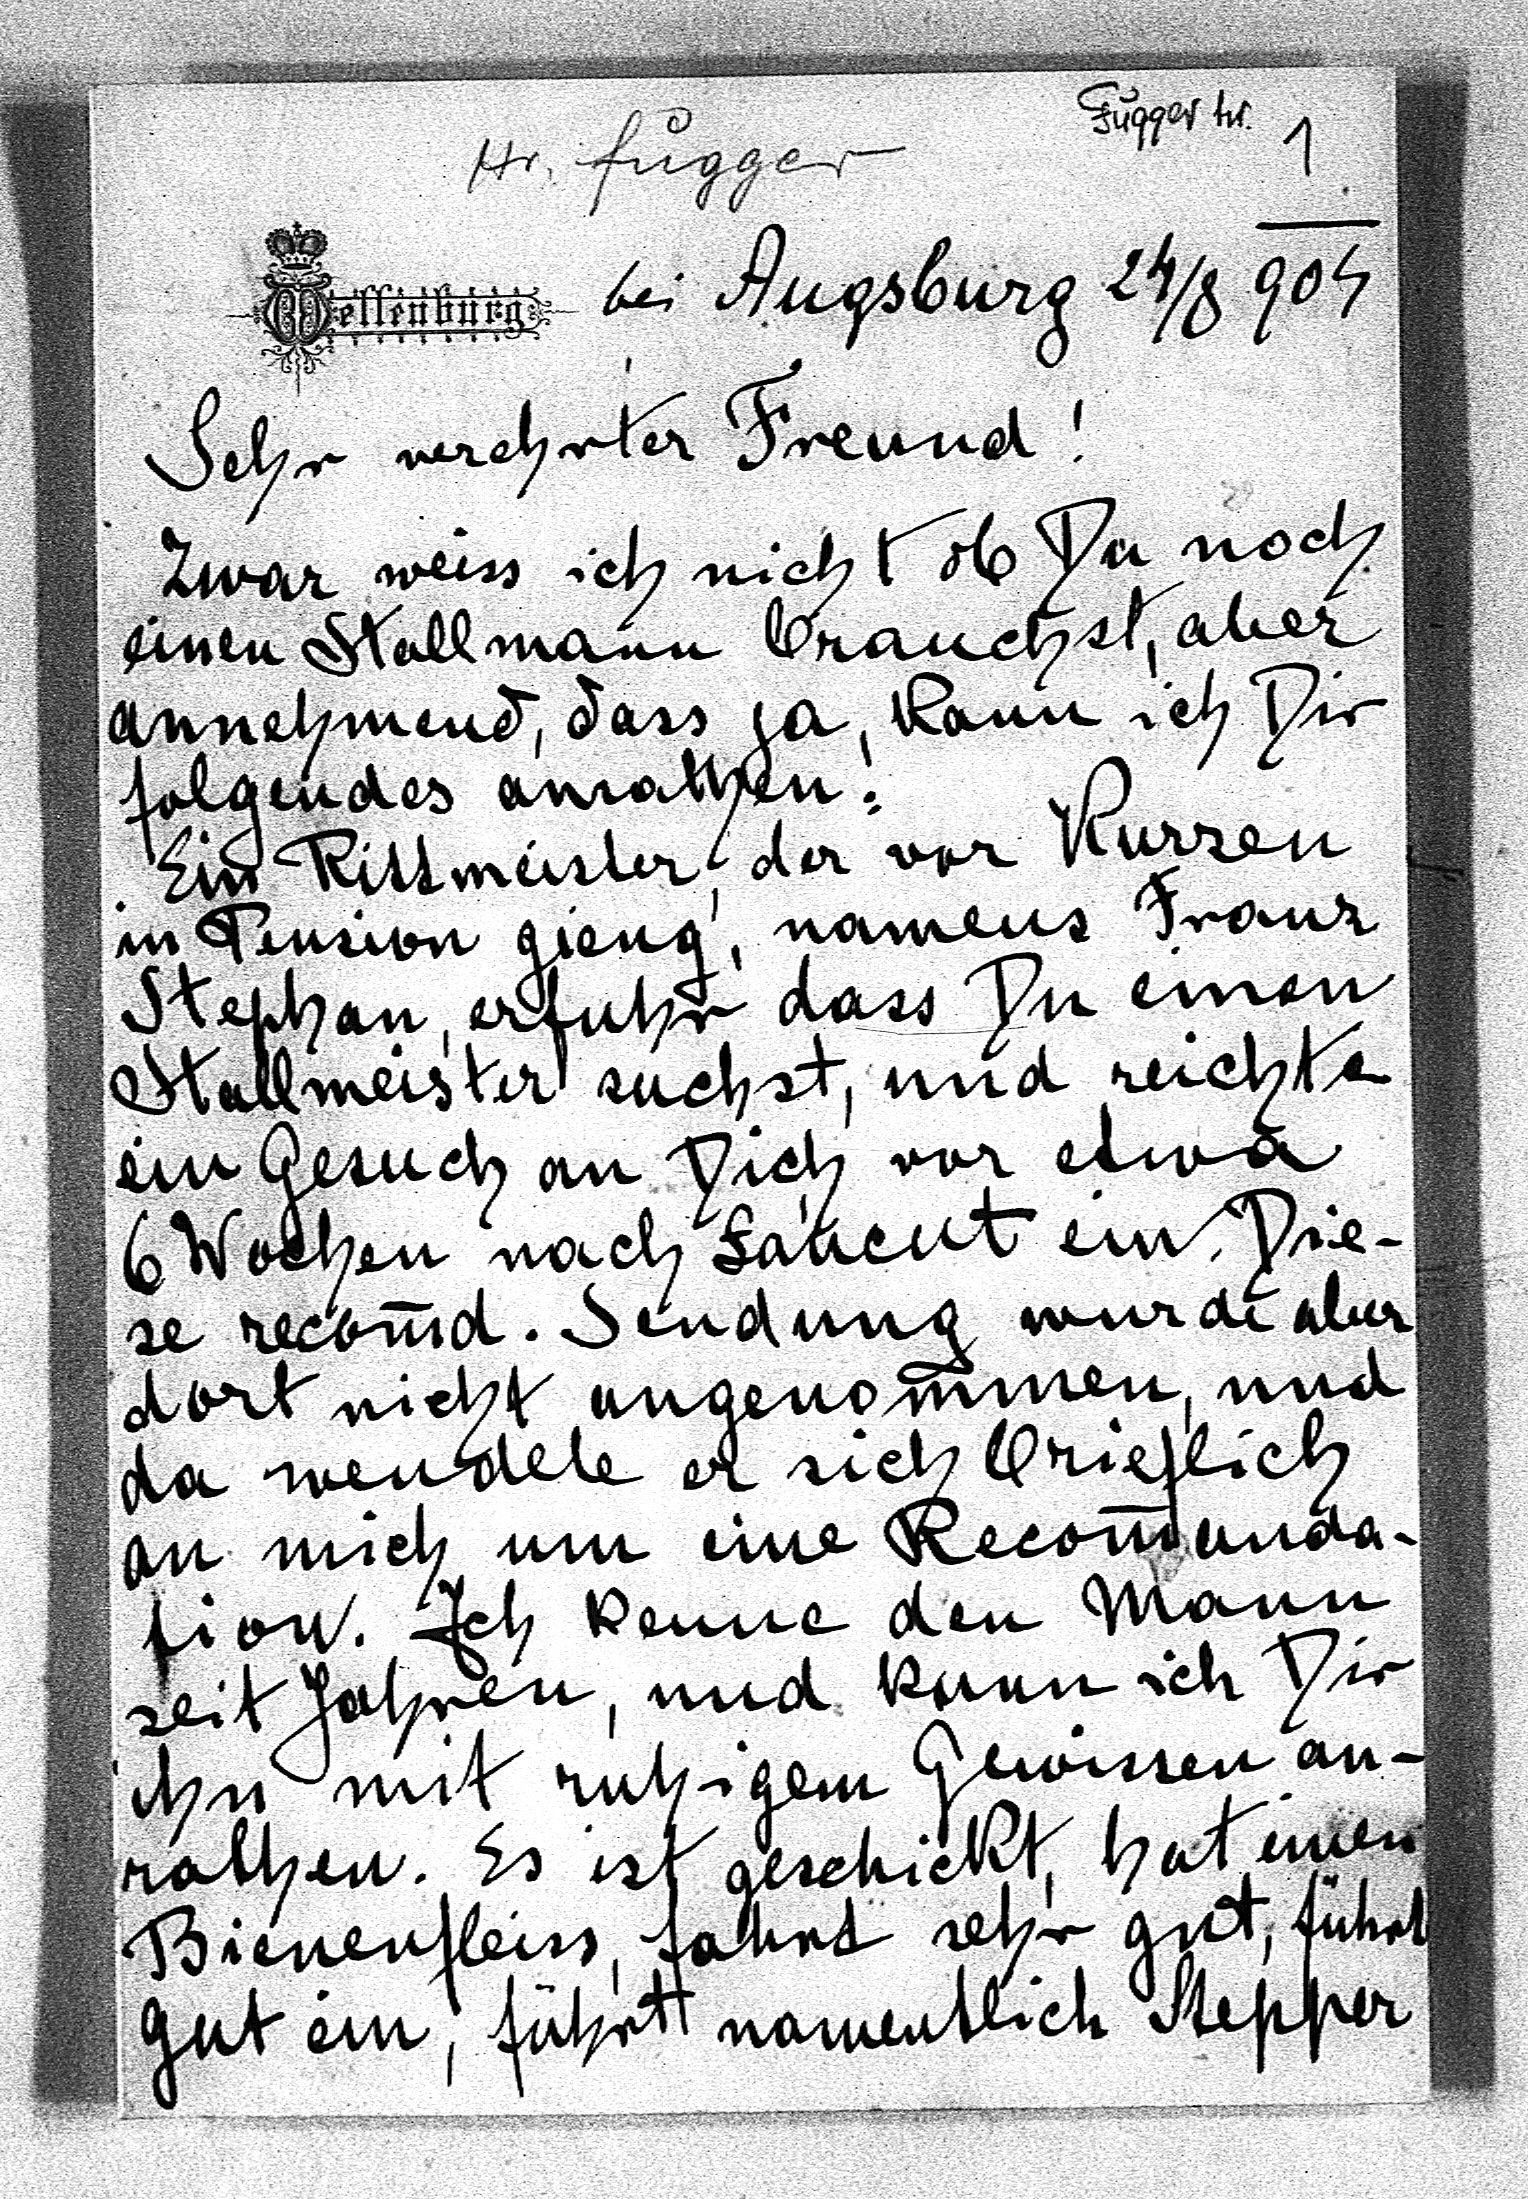 Fugger hr.
1
Hr. Fugger
Wellenburg bei Augsburg 24/8 904
Sehr verehrter Freund!
Zwar weiss ich nicht ob Du noch
einen Stallmann brauchst, aber
annehmend, dass ja, kann ich Dir
folgendes anrathen:
Ein Rittmeister, der vor Kurzen
in Pension gieng, namens Franz
Stephan, erfuhr dass Du einen
Stallmeister suchst, und reichte
ein Gesuch an Dich vor etwa
6 Wochen nach Łańcut ein. Die-
se recom̄d. Sendung wurde aber
dort nicht angenom̄men, und
da wendete er sich brieflich
an mich um eine Recom̄anda-
tion. Ich kenne den Mann
seit Jahren, und kann ich Dir
ihn mit ruhigem Gewissen an-
rathen. Es ist geschickt, hat einen
Bienenfleiss, fahrt sehr gut, führt
gut ein, führt namentlich Stepper